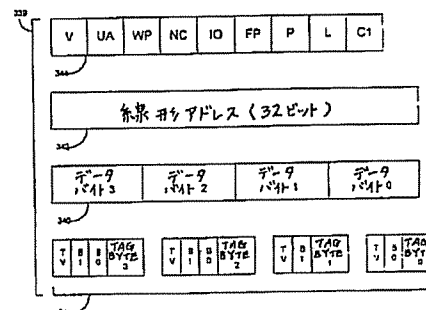 339
V UA WP NC IO FP P L C1
344
線形アドレス(32ビット)
342
データバイト3 データバイト2 データバイト1 データバイト0
340
TV B1 B0 TAG BYTE 3 TV B1 B0 TAG BYTE 2 TV B1 TAG BYTE 1 TV B0 TAG BYTE